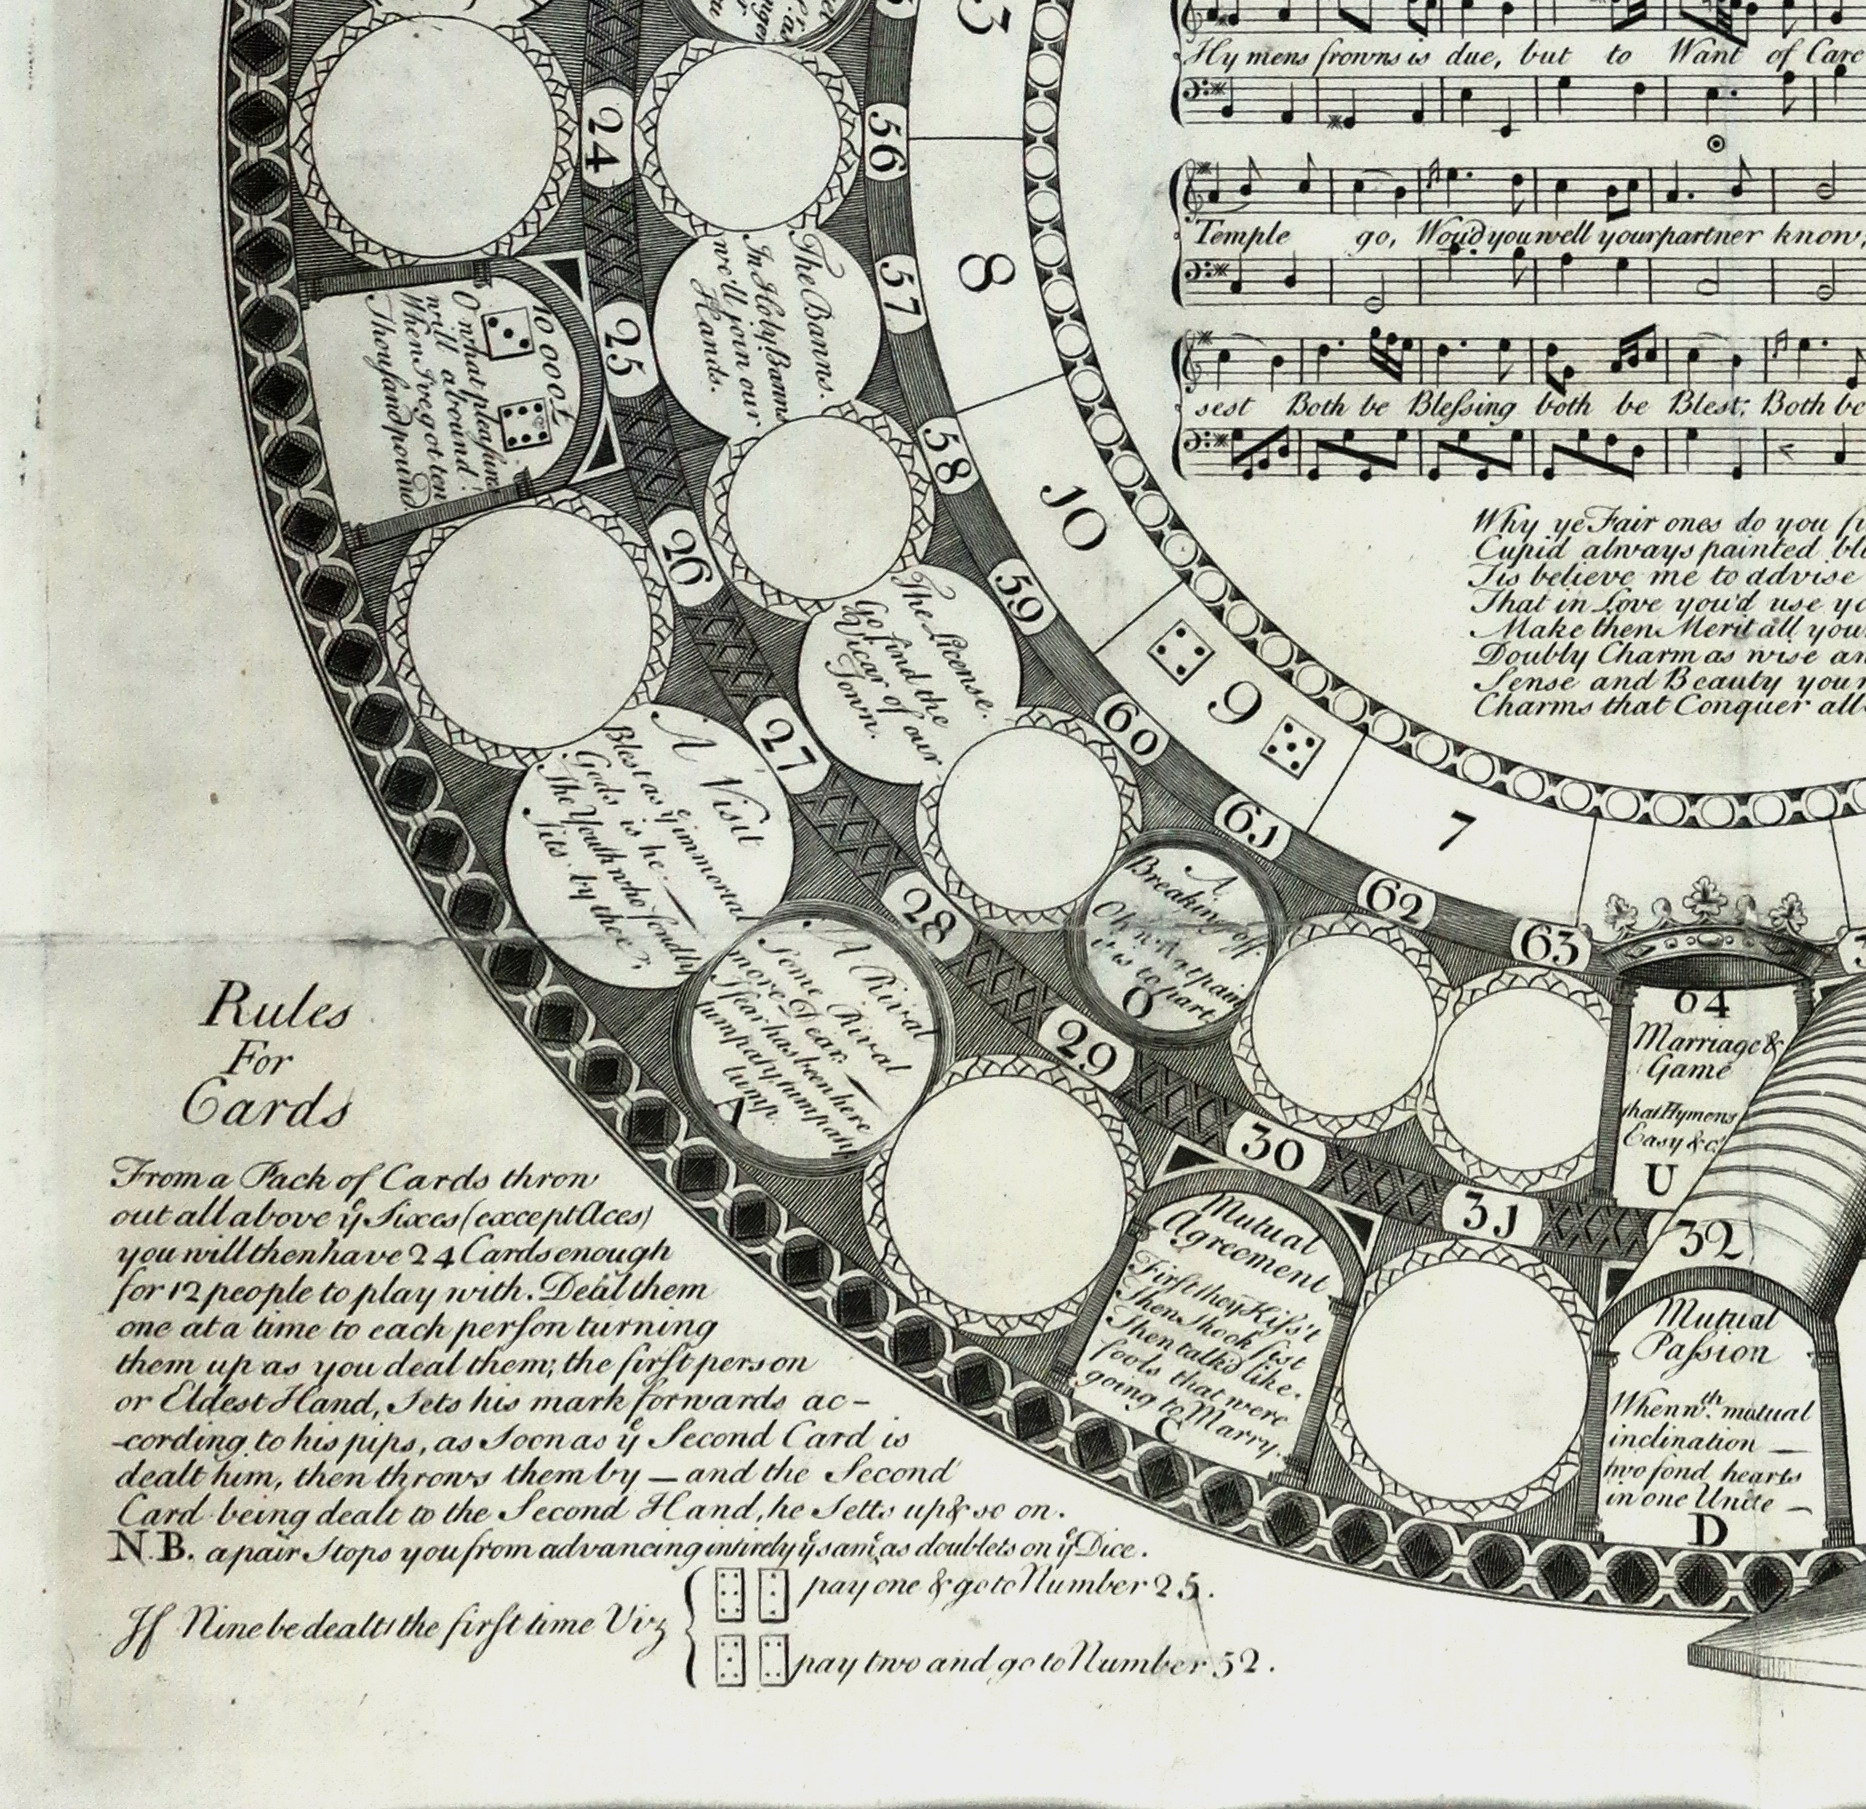 Hymens frowns is due, but to Want of Care
Temple go, Woud you well your partner know,
sest Both be Blessing both be Blest; Both be
Why ye Fair ones do you
Cupid always painted
Tis believe me to advise
That in Love you'd use
Make then Merit all you
Doubly Charm as wise
Sense and Beauty your
Charms that Conquer all
3
8
10
9
7
56
57
58
59
60
61
62
63
The Banns.
In Holy Banns
we'll join our
Hands.
The License.
Go find the
Vicar of our
Town.
A
Breaking off.
Oh what pain
it is to part.
O
64
Marriage &
Game
that Hymens
Easy &c.
U
24
25
26
27
28
29
30
31
32
10000£
O what pleasures
will abound!
When I've got ten
Thousand pound
A Visit
Blest as ye immortal
Gods is he —
The Youth who fondly
sits by thee;
A Rival
Some Rival
more Dear —
I fear has been here
tumpaty, tumpaty
tump.
A
Mutual
Agreement
First they Kiss't
Then Shook fist
Then talkd like.
fools that were
going to Marry.
C
Mutual
Passion
When wth. mutual
inclination —
two fond hearts
in one Unite —
D
Rules
For
Cards
From a Pack of Cards thron
out all above ye Sixes (except Aces)
you will then have 24 Cards enough
for 12 people to play with. Deal them
one at a time to each person turning
them up as you deal them; the first person
or Eldest Hand, Sets his mark forwards ac-
-cording to his pips, as Soon as ye Second Card is
dealt him, then throws them by — and the Second
Card being dealt to the Second Hand, he Setts up & so on.
N.B. a pair Stops you from advancing intirely ye same as doublets on ye Dice.
If Nine be dealt the first time Viz
pay one & go to Number 25.
pay two and go to Number 52.